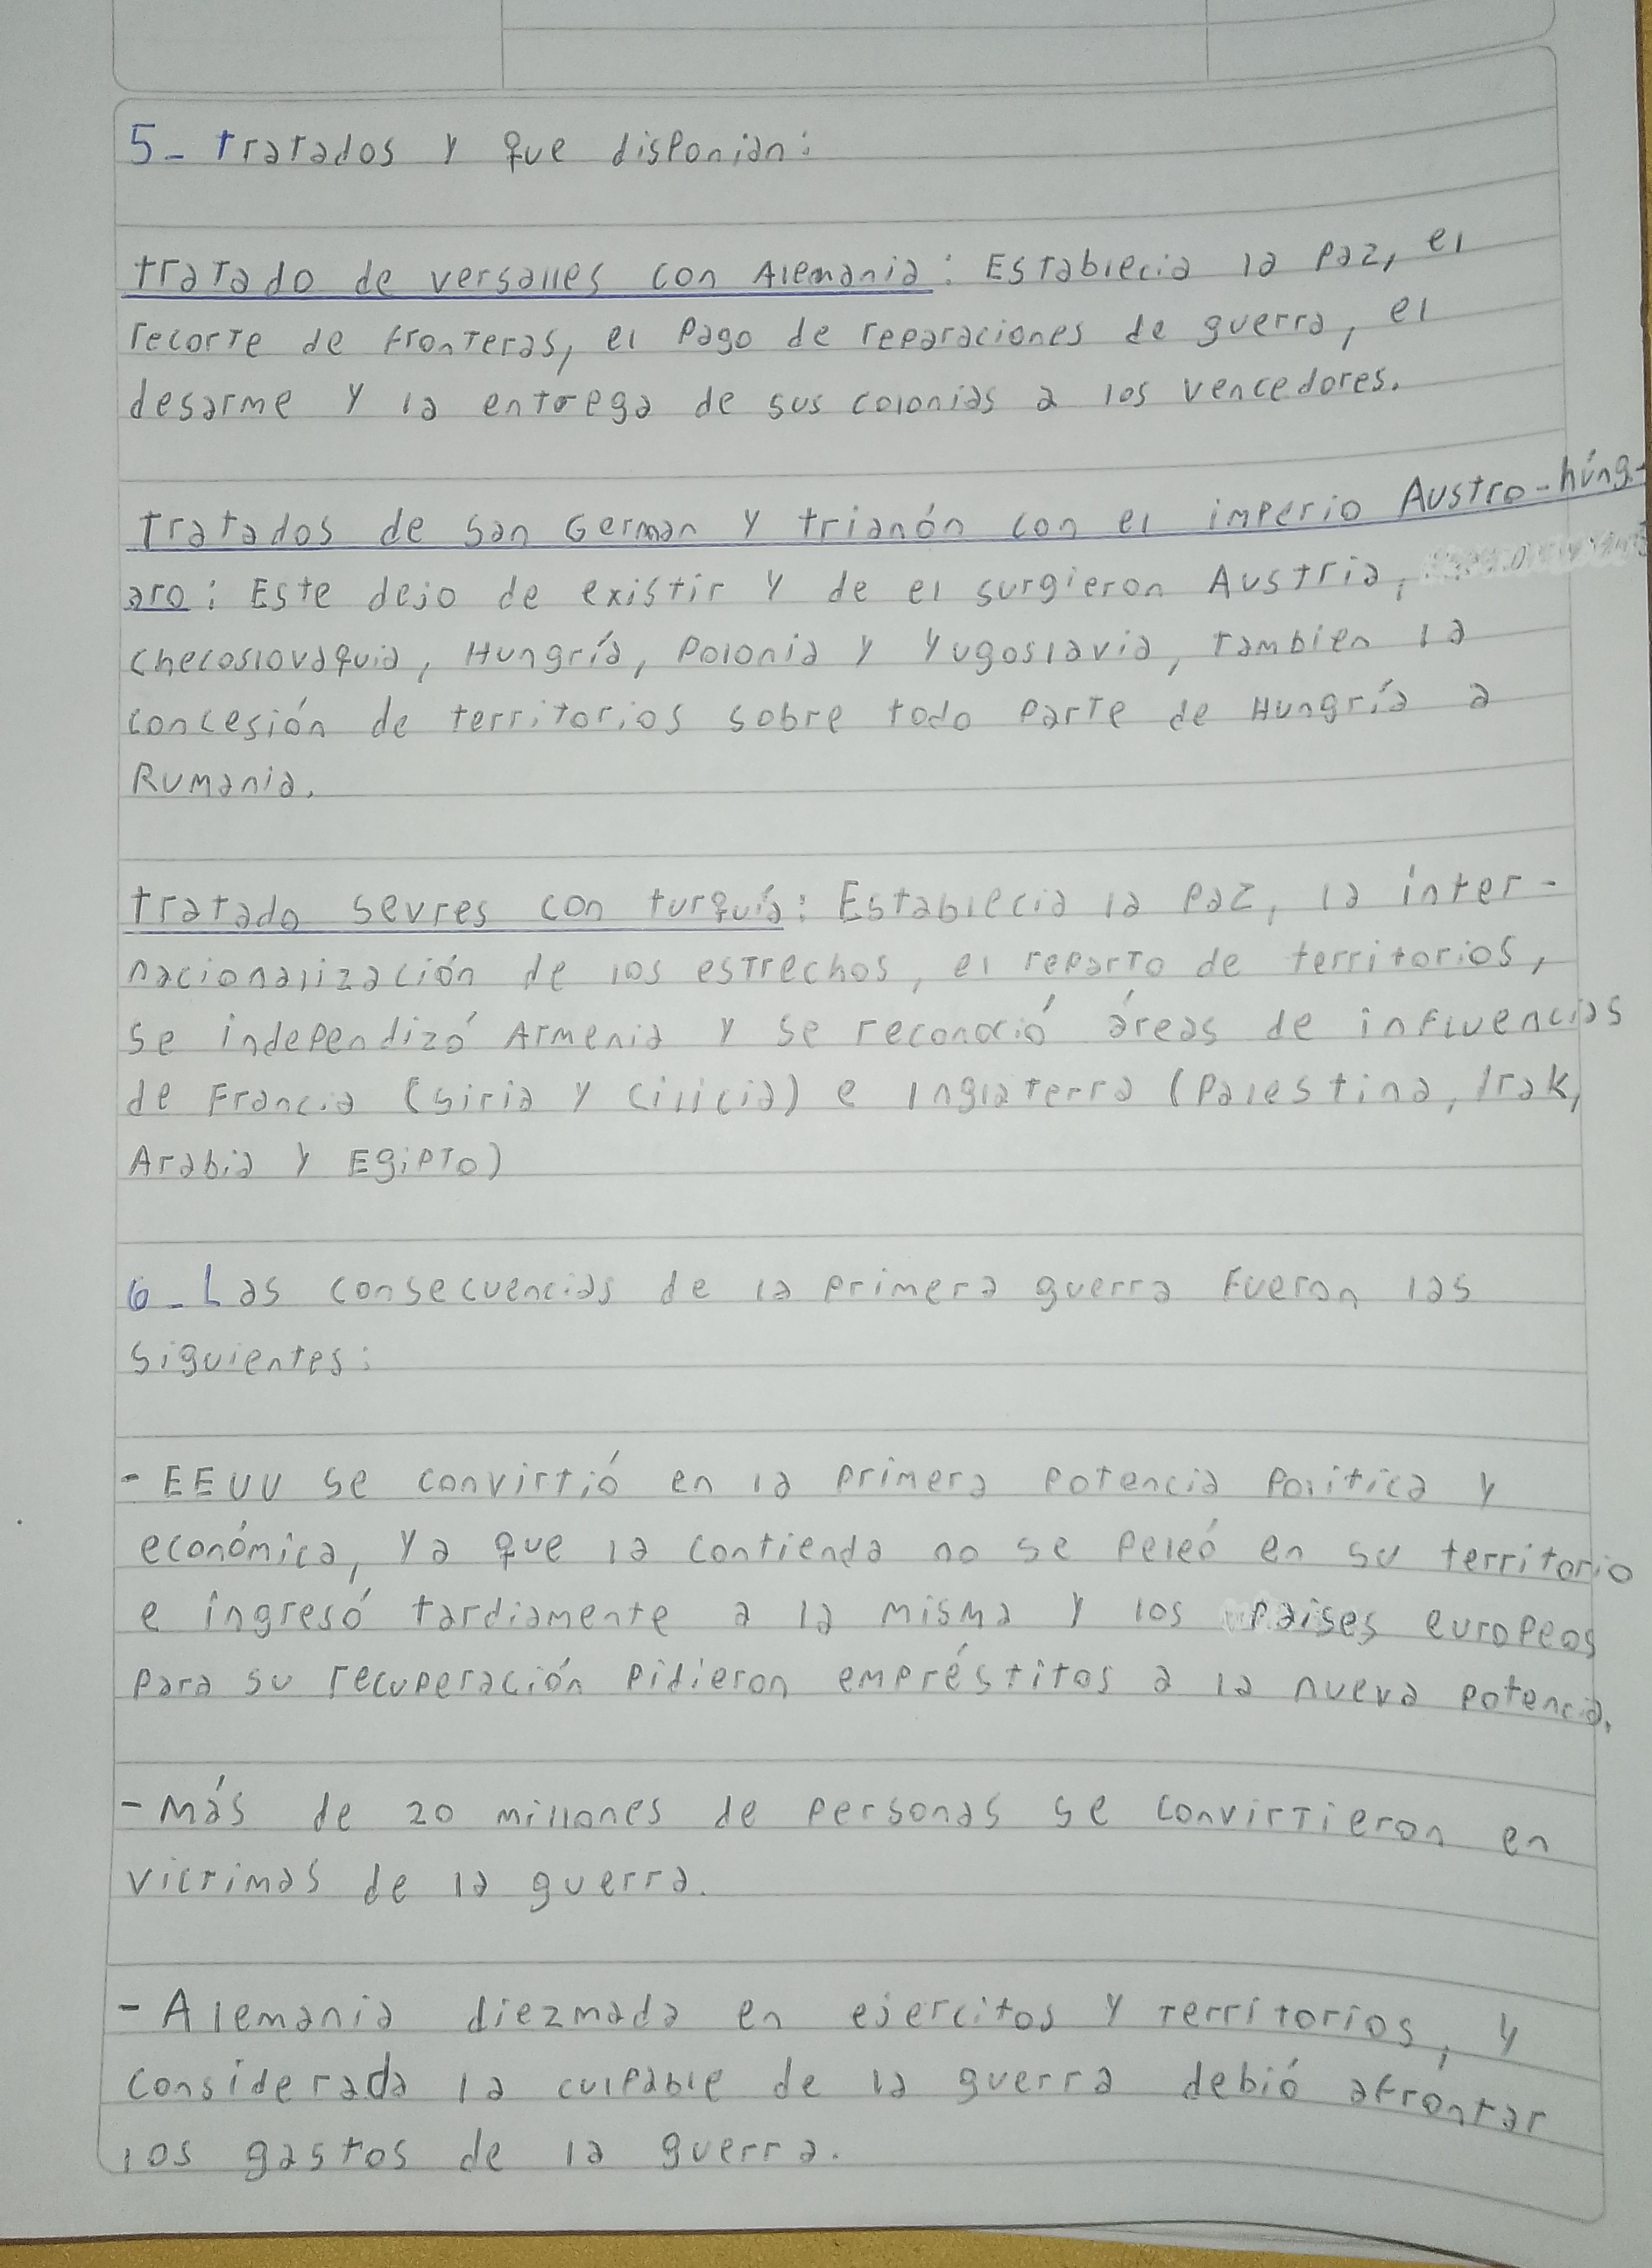 5- Tratados y que disponian:
tratado de versalles con Alemania: Establecia la Paz, el
recorte de fronteras, el Pago de reparaciones de guerra, el
desarme y la entrega de sus colonias a los vencedores.
Tratados de San German y trianón con el imperio Austro-húng-
aro: Este dejo de existir y de el surgieron Austria,
checoslovaquia, Hungría, Polonia y Yugoslavia, tambien la
concesión de territorios sobre todo parte de Hungría a
Rumania.
tratado sevres con turquía: Establecia la Paz, la inter-
nacionalización de los estrechos, el reparto de territorios,
se independizó Armenia y se reconoció áreas de influencias
de Francia (siria y cilicia) e Inglaterra (Palestina, Irak,
Arabia y Egipto)
6- Las consecuencias de la primera guerra fueron las
siguientes:
- EEUU se convirtió en la primera potencia política y
económica, ya que la contienda no se peleó en su territorio
e ingresó tardiamente a la misma y los paises europeos
para su recuperación pidieron empréstitos a la nueva potencia.
- Más de 20 millones de personas se convirtieron en
victimas de la guerra.
- Alemania diezmada en ejercitos y territorios, y
considerada la culpable de la guerra debió afrontar
los gastos de la guerra.